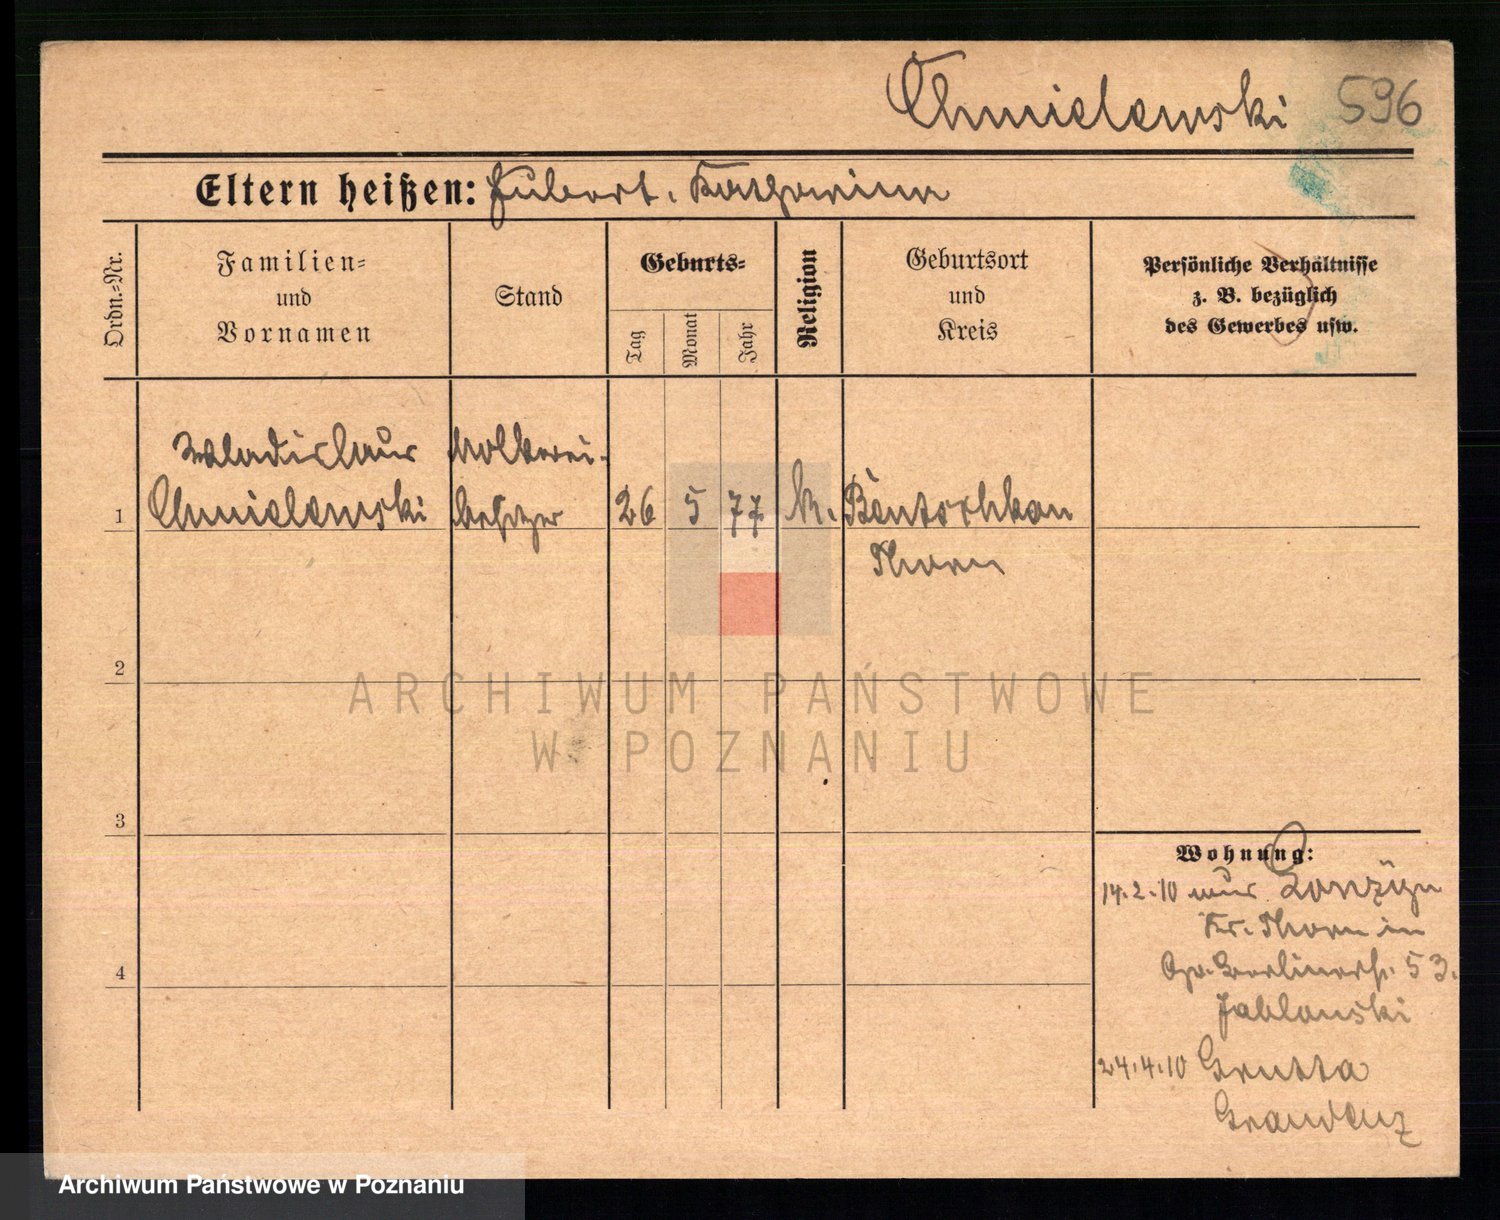 Chmielewski 596
Eltern heißen: Hubert. Katharina
Ordn.-Nr.
Familien-
und
Vornamen
Stand
Geburts-
Tag
Monat
Jahr
Religion
Geburtsort
und
Kreis
Persönliche Verhältnisse
z. B. bezüglich
des Gewerbes usw.
Wladislaus Molkerei-
1 Chmielewski besitzer 26 5 77 k.
Thorn
2
ARCHIWUM PAŃSTWOWE
W POZNANIU
3
Wohnung:
14.2.10 aus
Kr. Thorn in
Berlinerst. 53.
Jablonski
4
24.4.10 Grutta
Graudenz
Archiwum Państwowe w Poznaniu